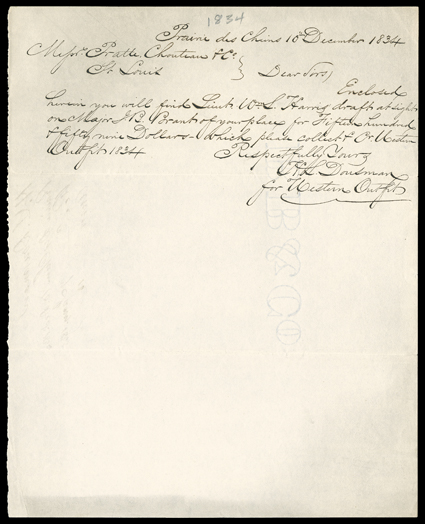 1834
Prairie des Chiens 10th December 1834
Messrs. Pratte, Chouteau & Co.
St. Louis } Dear Sirs,
Enclosed
herein you will find Lieut. Wm. S. Harris draft at sight
on Major J. B. Brant of your place for Fifteen hundred
& fifty nine Dollars - which please collect & Cr. Western
Outfit 1834
Respectfully Yours
H. L. Dousman
for Western Outfit
B & CO